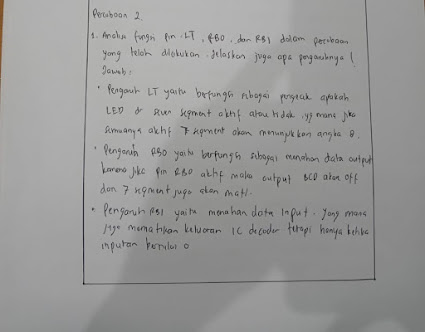 Percobaan 2.
1. Analisa fungsi Pin LT, RBO, dan RBI dalam percobaan
yang telah dilakukan. Jelaskan juga apa pengaruhnya!
Jawab:
• Pengaruh LT yaitu berfungsi sebagai pengecek apakah
LED di seven segment aktif atau tidak, yg mana jika
semuanya aktif 7 segment akan menunjukkan angka 8.
• Pengaruh RBO yaitu berfungsi sebagai menahan data output
karena jika pin RBO aktif maka output BCD akan off
dan 7 segment juga akan mati.
• Pengaruh RBI yaitu menahan data input. Yang mana
juga mematikan keluaran IC decoder tetapi hanya ketika
inputan bernilai 0